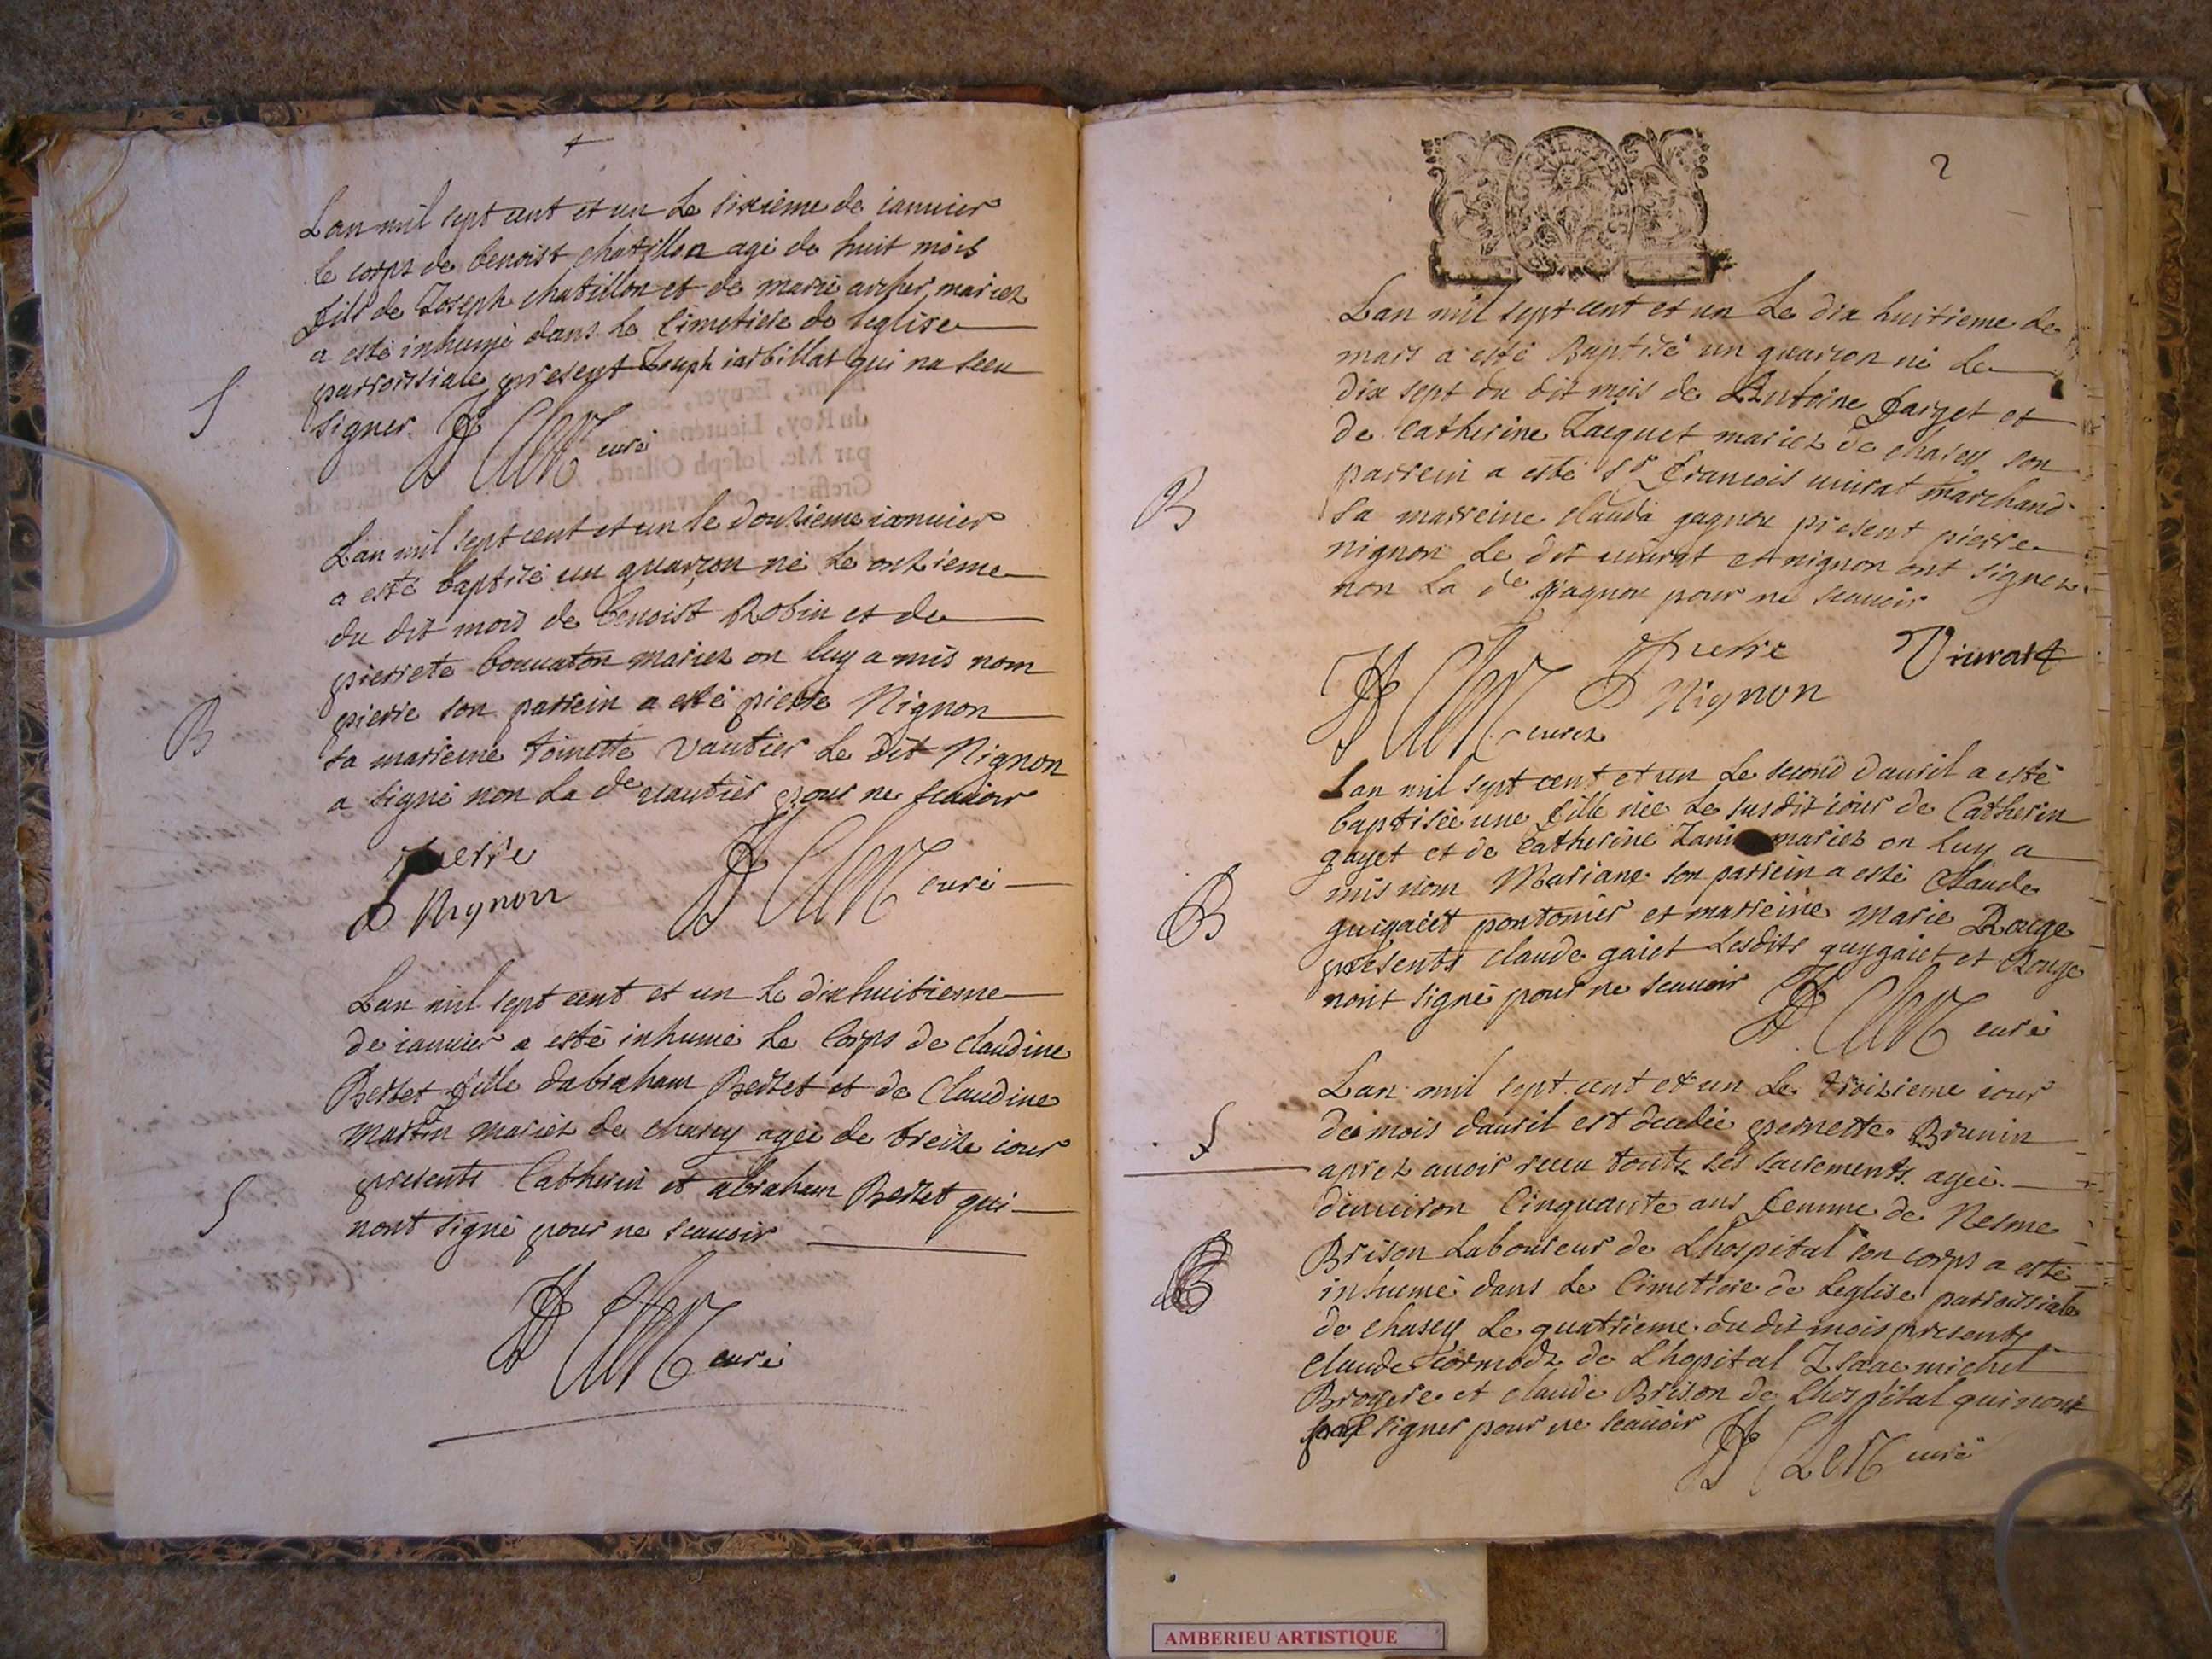 Lan mil sept cent et un Le sixieme de ianuier
le corps de benoist chatillon agé de huit mois
fils de Joseph chatillon et de marie archer mariez
a esté inhumé dans le Cimetiere de leglise
parroissiale present Joseph iarbillat qui na sceu
signer curé
S
Lan mil sept cent et un le douzieme ianuier
a esté baptisé un guarçon né le onzieme
du dit mois de benoist Robin et de
pierrete bouuaton mariez on luy a mis nom
pierre son parrein a esté pierre Nignon
sa marreine toinette vautier Le dit Nignon
a signé non La de vautier pour ne scauoir
B
pierre
Nignon
curé
Lan mil sept cent et un le dixhuitieme
de ianuier a esté inhumé le Corps de Claudine
Bertet fille dabraham Bertet et de Claudine
martin mariez de chasey ageé de treize iour
presents Catherin et abraham Bertet qui
nont signé pour ne scauoir
S
curé
2
Lan mil sept cent et un Le dix huitieme de
mars a esté Baptisé un guarcon né Le
dix sept du dit mois de Antoine farget et
de Catherine Jacquet mariez de chasey son
parrein a esté Sr francois uiurat marchand
sa marreine clauda gagnou present pierre
nignon Le dit uiurat et nignon ont signez
non La de gagnou pour ne scauoir
B
pierre
Nignon
Viurat
curez
Lan mil sept cent et un Le second dauril a esté
baptisée une fille neé Le susdit iour de Catherin
gayet et de Catherine mariez on luy a
mis nom Mariane son parrein a esté Claude
guigaiet pontonier et marreine marie Rouge
presents claude gaiet Lesdits guygaiet et Rouge
nont signé pour ne scauoir
B
curé
Lan mil sept cent et un Le troizieme iour
de mois dauril est decedeé pernette Brunin
aprez auoir receu toutz ses sacrements ageé
denuiron Cinquante ans femme de Nesme
Brison Laboureur de Lhospital son corps a esté
inhumé dans Le Cimetiere de Leglise parroissiale
de chasey Le quatrieme du dit mois presents
Claude de Lhopital Isaac michel
Brogere et claude Brison de Lhospital qui nont
signer pour ne scauoir
S
B
curé
AMBERIEU ARTISTIQUE